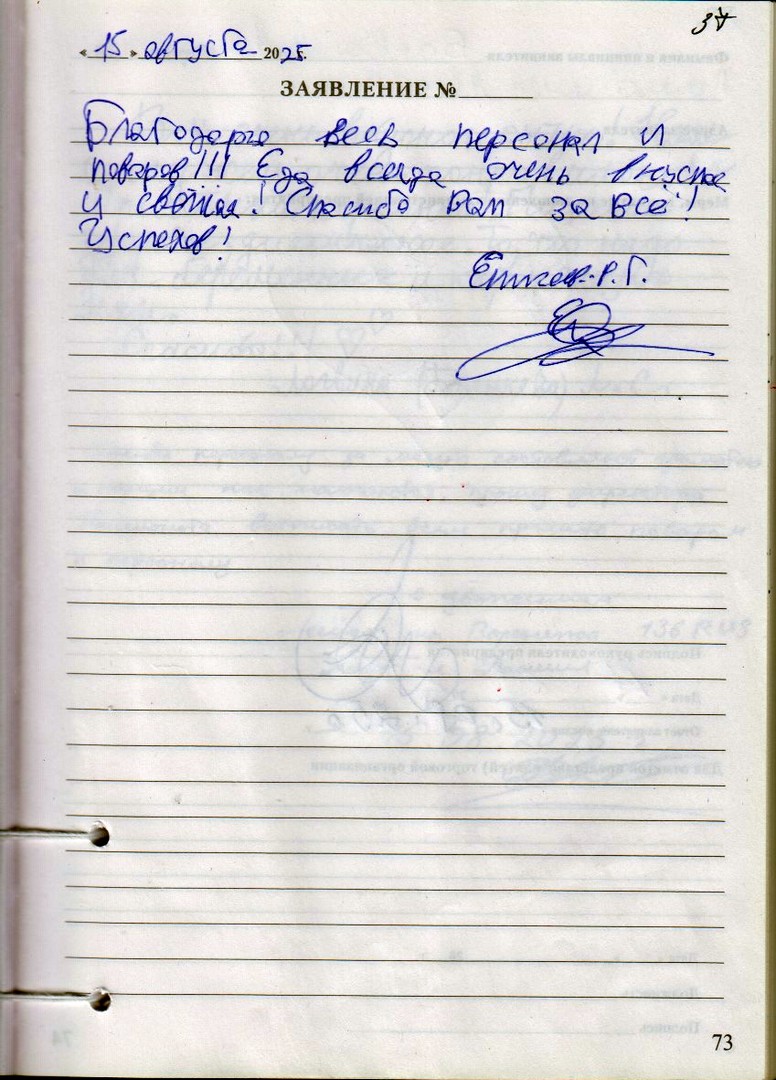 37
« 15 » августа 2025 г.
ЗАЯВЛЕНИЕ №
Благодарю весь персонал и
поваров!!! Еда всегда очень вкусная
и свежая! Спасибо Вам за всё!
Успехов!
Р.Г.
73